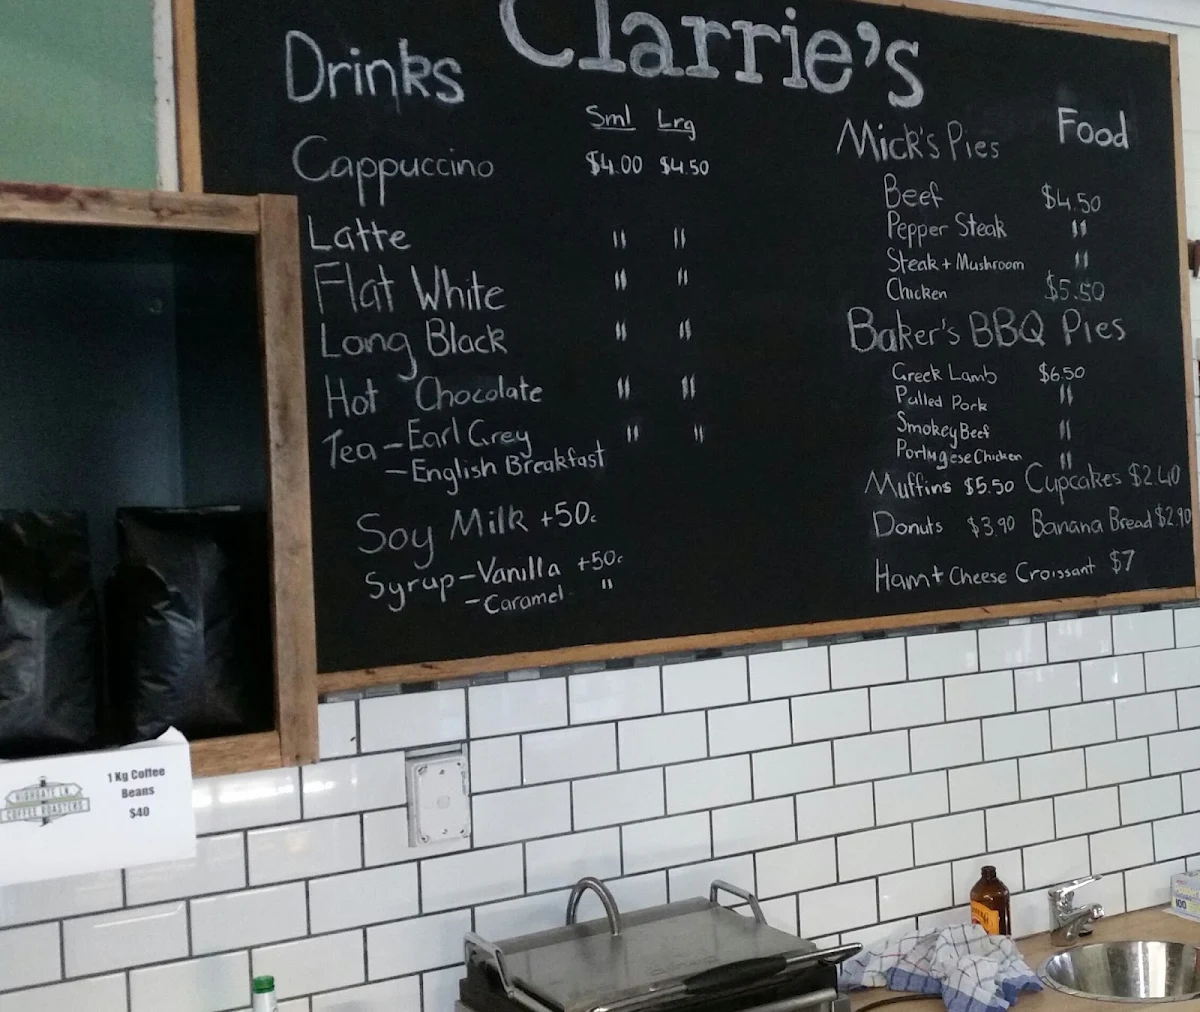 Clarrie's
Drinks
Sml Lrg
Cappuccino $4.00 $4.50
Latte " "
Flat White " "
Long Black " "
Hot Chocolate " "
Tea - Earl Grey " "
- English Breakfast
Soy Milk +50c
Syrup - Vanilla +50c
- Caramel "
Food
Mick's Pies
Beef $4.50
Pepper Steak "
Steak + Mushroom "
Chicken $5.50
Baker's BBQ Pies
Greek Lamb $6.50
Pulled Pork "
Smokey Beef "
Portugese Chicken "
Muffins $5.50 Cupcakes $2.40
Donuts $3.90 Banana Bread $2.90
Ham + Cheese Croissant $7
HIGHGATE LN.
COFFEE ROASTERS
1 Kg Coffee
Beans
$40
100